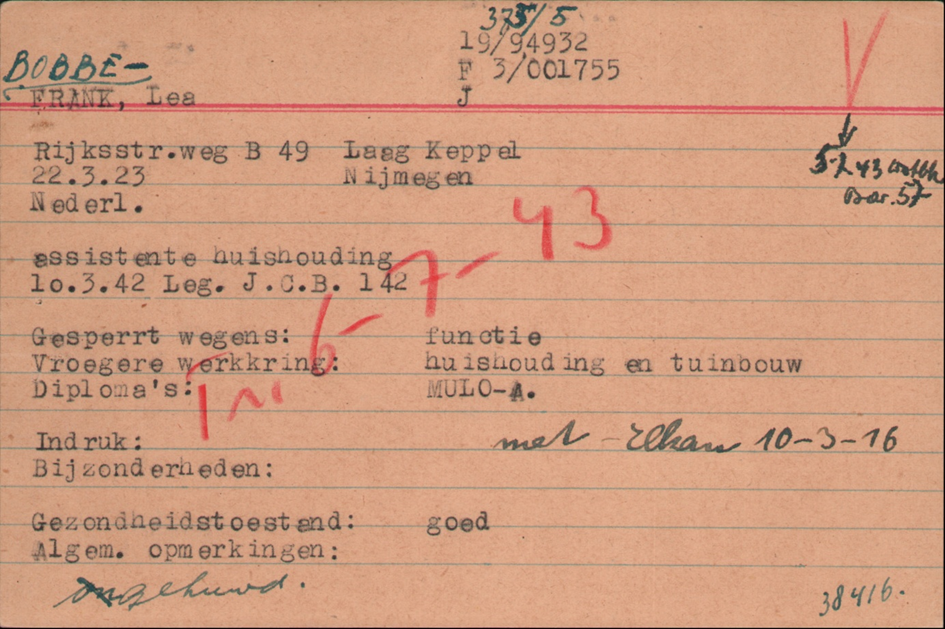 375/5
19/94932
BOBBE-
F 3/001755
FRANK, Lea J
Rijksstr.weg B 49 Laag Keppel
5-7 43 Westbk
22.3.23 Nijmegen
Bar. 57
Nederl.
assistente huishouding
lo.3.42 Leg. J.C.B. 142
Tr. 6-7-43
Gesperrt wegens: functie
Vroegere werkkring: huishouding en tuinbouw
Diploma's: MULO-A.
Indruk: met Elkan 10-3-16
Bijzonderheden:
Gezondheidstoestand: goed
Algem. opmerkingen:
ongehuwd.
38416.